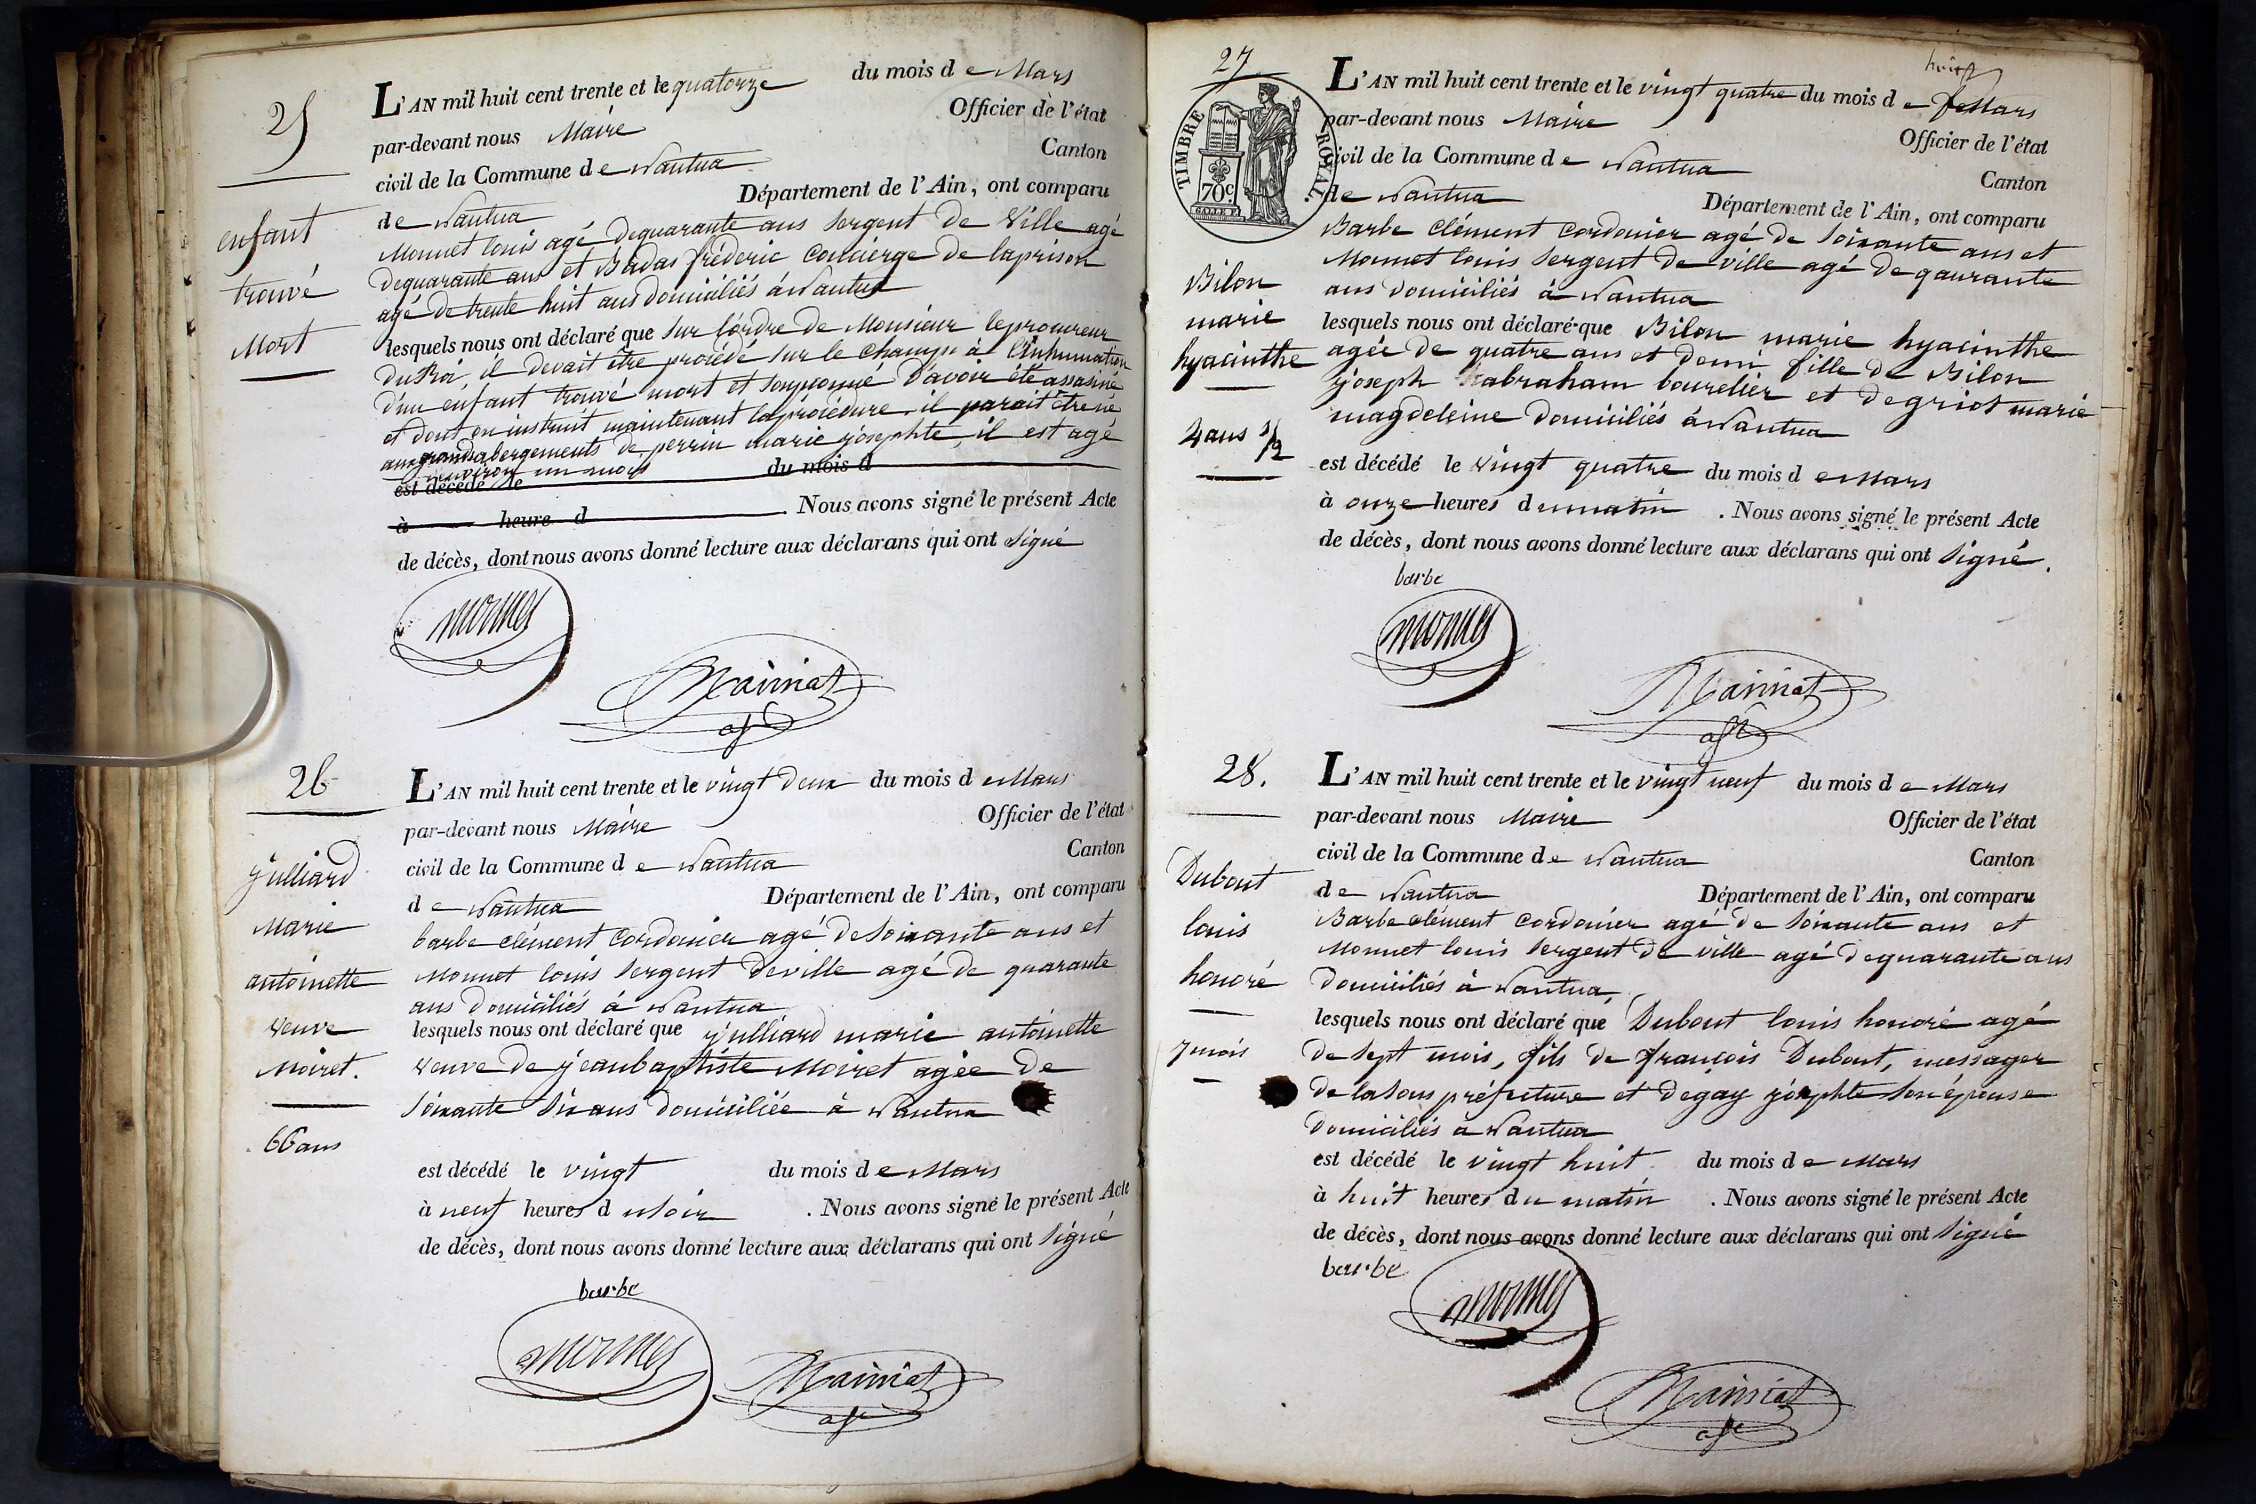 25
enfant
trouvé
Mort
L'AN mil huit cent trente et le quatorze du mois de Mars
par-devant nous Maire Officier de l'état
civil de la Commune de Nantua Canton
de Nantua Département de l'Ain, ont comparu
Monnet louis agé de quarante ans Sergent de Ville agé
de quarante ans et Badas fréderic Concierge de la prison
agé de trente huit ans domiciliés à Nantua
lesquels nous ont déclaré que sur l'ordre de Monsieur le procureur
du Roi, il devait être procédé sur le champs à l'inhumation
d'un enfant trouvé mort et soupçonné d'avoir été assasiné
et dont on instruit maintenant la procédure. il parait être né
aux grands abergements de perrin marie josephte, il est agé
d'environ un mois
est décédé le du mois d
à heure d . Nous avons signé le présent Acte
de décès, dont nous avons donné lecture aux déclarans qui ont signé
monnet
26
julliard
Marie
antoinette
veuve
Moiret.
66 ans
L'AN mil huit cent trente et le vingt deux du mois de Mars
par-devant nous Maire Officier de l'état
civil de la Commune de Nantua Canton
de Nantua Département de l'Ain, ont comparu
barbe clément Cordonier agé de soixante ans et
Monnet louis Sergent de ville agé de quarante
ans domiciliés à Nantua
lesquels nous ont déclaré que julliard marie antoinette
veuve de jean baptiste Moiret agée de
soixante six ans domiciliée à Nantua
est décédé le vingt du mois de Mars
à neuf heures du soir . Nous avons signé le présent Acte
de décès, dont nous avons donné lecture aux déclarans qui ont signé
barbe
monnet
huit
27
TIMBRE ROYAL.
70c.
Bilon
marie
hyacinthe
4 ans 1/2
L'AN mil huit cent trente et le vingt quatre du mois de Mars
par-devant nous Maire Officier de l'état
civil de la Commune de Nantua Canton
de Nantua Département de l'Ain, ont comparu
Barbe Clément Cordonier agé de soixante ans et
Monnet louis Sergent de ville agé de qaurante
ans domiciliés à Nantua
lesquels nous ont déclaré que Bilon marie hyacinthe
agée de quatre ans et demi fille de Bilon
joseph abraham bourelier et de griot marie
magdeleine domiciliés à Nantua
est décédé le vingt quatre du mois de Mars
à onze heures du matin . Nous avons signé le présent Acte
de décès, dont nous avons donné lecture aux déclarans qui ont signé.
barbe
monnet
28.
Dubout
louis
honoré
7 mois
L'AN mil huit cent trente et le vingt neuf du mois de Mars
par-devant nous Maire Officier de l'état
civil de la Commune de Nantua Canton
de Nantua Département de l'Ain, ont comparu
Barbe clément Cordonier agé de soixante ans et
Monnet louis Sergent de ville agé de quarante ans
domiciliés à Nantua,
lesquels nous ont déclaré que Dubout louis honoré agé
de sept mois, fils de françois Dubout, messager
de la sous préfecture et de gay josephte son épouse
domiciliés à Nantua
est décédé le vingt huit du mois de Mars
à huit heures du matin . Nous avons signé le présent Acte
de décès, dont nous avons donné lecture aux déclarans qui ont signé
barbe
monnet